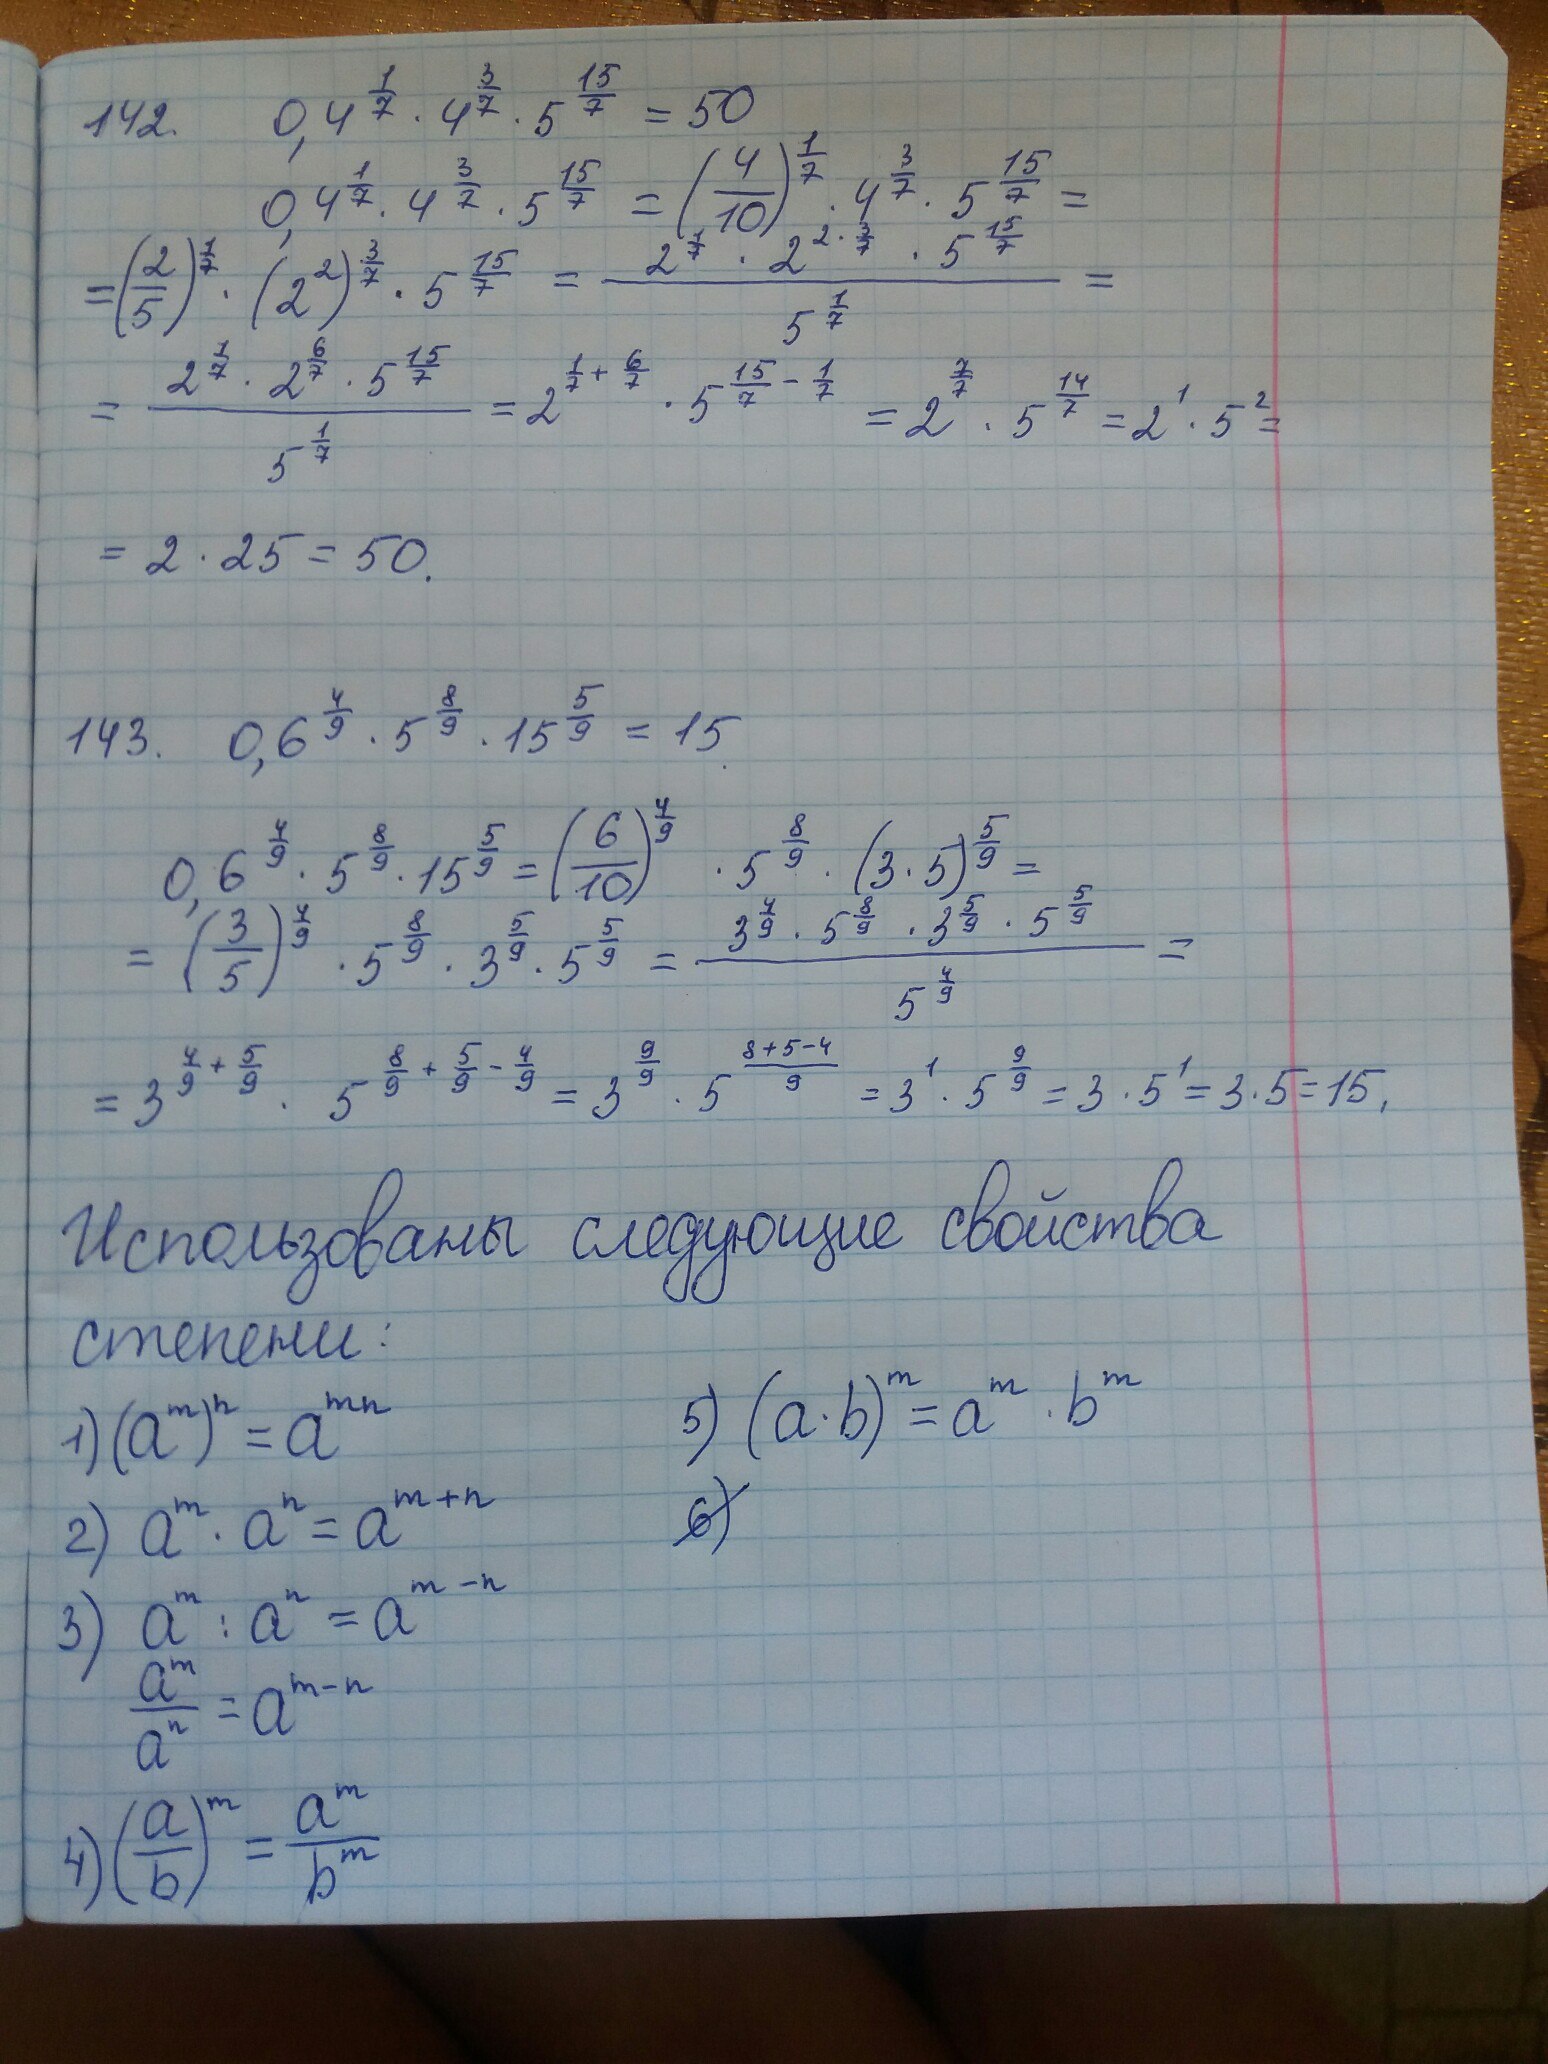 142. 0,4^(1/7) · 4^(3/7) · 5^(15/7) = 50
0,4^(1/7) · 4^(3/7) · 5^(15/7) = (4/10)^(1/7) · 4^(3/7) · 5^(15/7) =
= (2/5)^(1/7) · (2^2)^(3/7) · 5^(15/7) = (2^(1/7) · 2^(2·3/7) · 5^(15/7)) / 5^(1/7) =
= (2^(1/7) · 2^(6/7) · 5^(15/7)) / 5^(1/7) = 2^(1/7 + 6/7) · 5^(15/7 - 1/7) = 2^(7/7) · 5^(14/7) = 2^1 · 5^2 =
= 2 · 25 = 50.
143. 0,6^(4/9) · 5^(8/9) · 15^(5/9) = 15.
0,6^(4/9) · 5^(8/9) · 15^(5/9) = (6/10)^(4/9) · 5^(8/9) · (3·5)^(5/9) =
= (3/5)^(4/9) · 5^(8/9) · 3^(5/9) · 5^(5/9) = (3^(4/9) · 5^(8/9) · 3^(5/9) · 5^(5/9)) / 5^(4/9) =
= 3^(4/9 + 5/9) · 5^(8/9 + 5/9 - 4/9) = 3^(9/9) · 5^((8+5-4)/9) = 3^1 · 5^(9/9) = 3 · 5^1 = 3·5 = 15.
Использованы следующие свойства
степени:
1) (a^m)^n = a^(mn)
2) a^m · a^n = a^(m+n)
3) a^m : a^n = a^(m-n)
a^m / a^n = a^(m-n)
4) (a/b)^m = a^m / b^m
5) (a·b)^m = a^m · b^m
6)